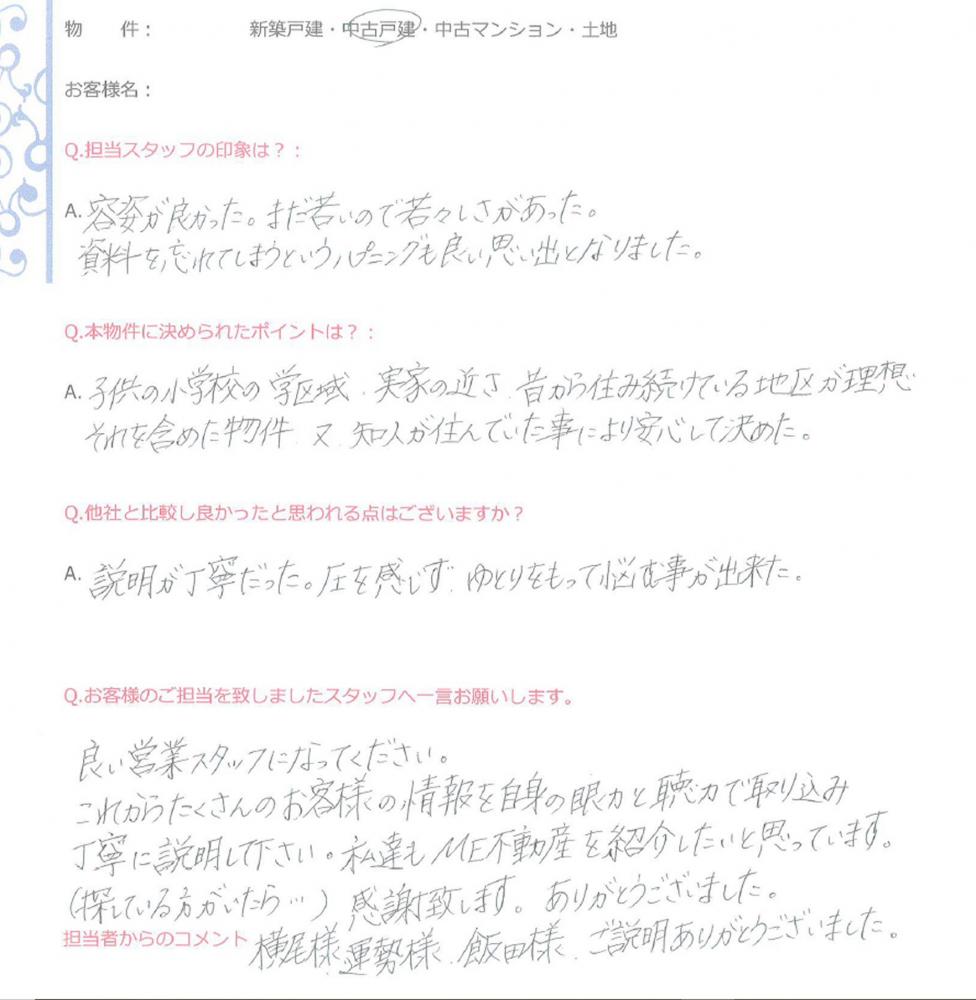 物　　件：　　　　　新築戸建・中古戸建・中古マンション・土地
お客様名：
Q.担当スタッフの印象は？：
A. 容姿が良かった。まだ若いので若々しさがあった。
資料を忘れてしまうというハプニングも良い思い出となりました。
Q.本物件に決められたポイントは？：
A. 子供の小学校の学区域、実家の近さ、昔から住み続けている地区が理想
それを含めた物件、又、知人が住んでいた事により安心して決めた。
Q.他社と比較し良かったと思われる点はございますか？
A. 説明が丁寧だった。圧を感じず、ゆとりをもって悩む事が出来た。
Q.お客様のご担当を致しましたスタッフへ一言お願いします。
良い営業スタッフになってください。
これからたくさんのお客様の情報を自身の眼力と聴力で取り込み
丁寧に説明して下さい。私達もME不動産を紹介したいと思っています。
（探している方がいたら…）感謝致します。ありがとうございました。
担当者からのコメント 横尾様、運勢様、飯田様、ご説明ありがとうございました。